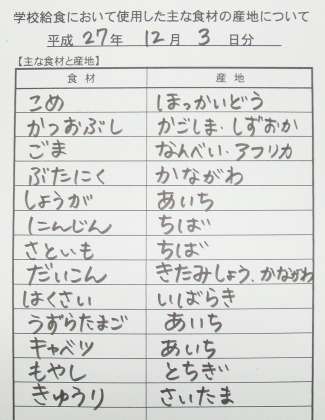 学校給食において使用した主な食材の産地について
平成 27 年 12 月 3 日分
【主な食材と産地】
食 材 産 地
こめ ほっかいどう
かつおぶし かごしま・しずおか
ごま なんべい・アフリカ
ぶたにく かながわ
しょうが あいち
にんじん ちば
さといも ちば
だいこん きたみしょう、かながわ
はくさい いばらき
うずらたまご あいち
キャベツ あいち
もやし とちぎ
きゅうり さいたま